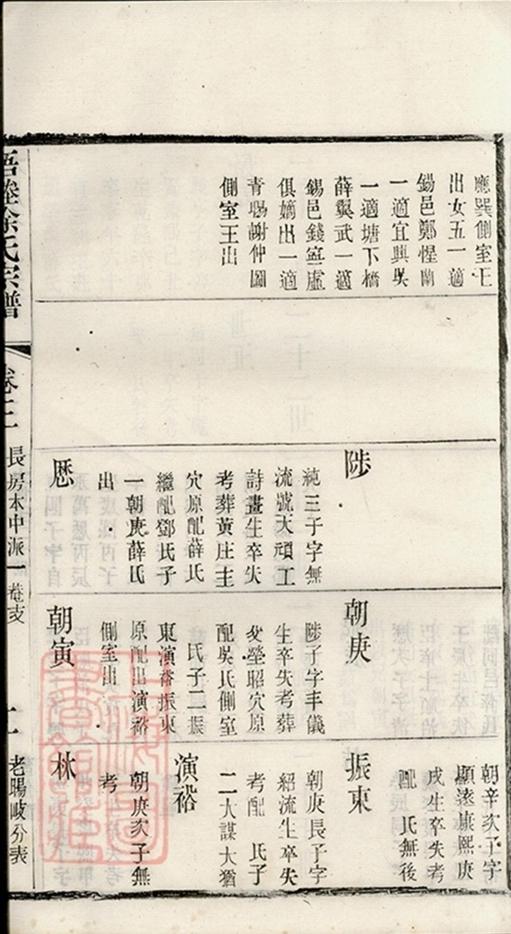 應巽側室王
出女五一適
錫邑鄭惺蘭
一適宜興吳
一適塘下橋
薛巽武一適
錫邑錢寧虛
俱嫡出一適
青暘謝仲圖
側室王出
陟
純三子字無
流號大頑工
詩畫生卒失
考葬黃庄主
穴原配薛氏
繼配鄧氏子
一朝庚薛氏
出
愿
朝庚
陟子字丰儀
生卒失考葬
父塋昭穴原
配吳氏側室
氏子二振
東演裕振東
原配出演裕
側室出
朝寅
朝辛次子字
顯遠康熙庚
戌生卒失考
配 氏無後
振東
朝庚長子字
紹流生卒失
考配 氏子
二大謀大猶
演裕
朝庚次子無
考
林
梧塍徐氏宗譜
卷十二
長房本中派一菴支
老暘岐分表